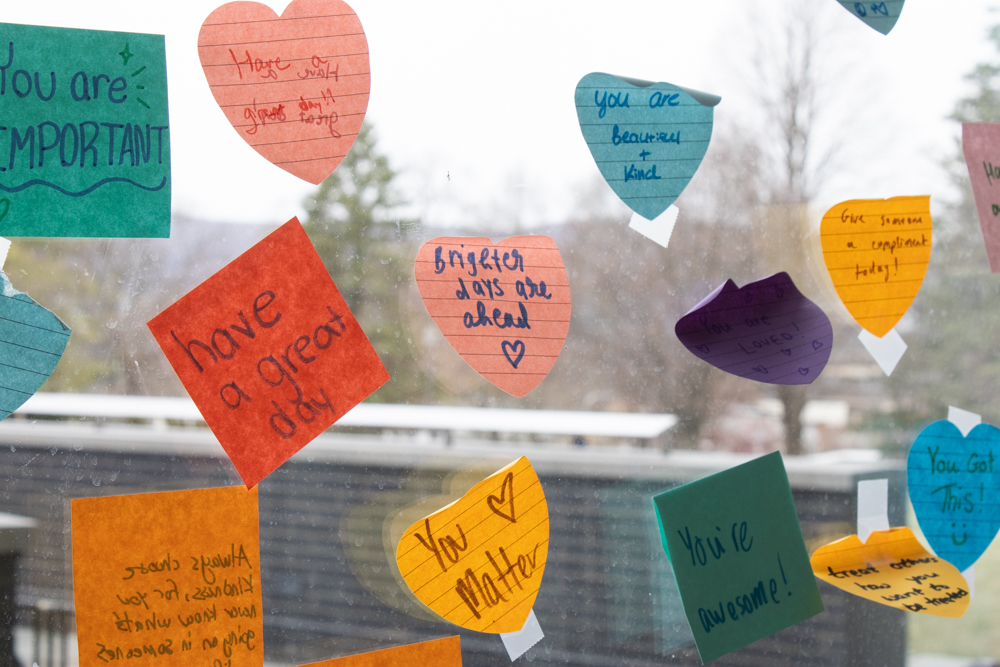 You are
IMPORTANT
Have a
great day!!
You are
Beautiful
+
Kind
Give someone
a compliment
today!
Brighter
days are
ahead
have
a great
day
You are
LOVED!
You Got
This!
You
Matter
You're
awesome!
treat others
how you
want to
be treated
Always choose
kindness, for you
never know what's
going on in someone's